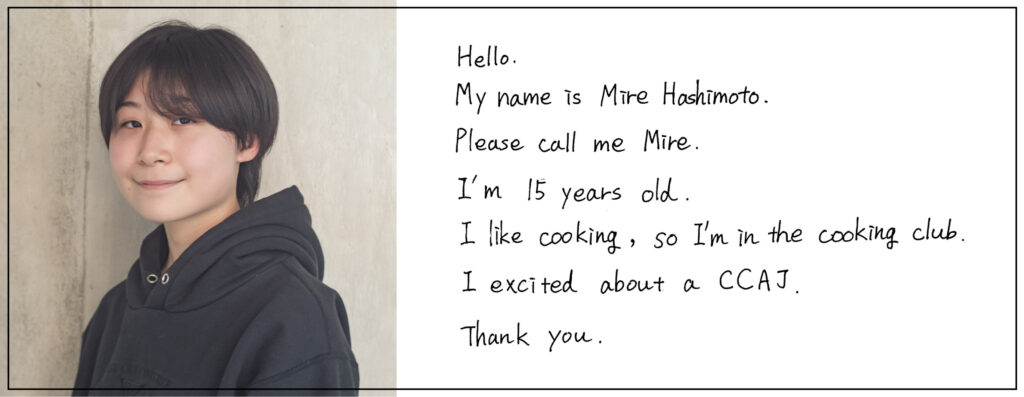 Hello.
My name is Mire Hashimoto.
Please call me Mire.
I'm 15 years old.
I like cooking, so I'm in the cooking club.
I excited about a CCAJ.
Thank you.